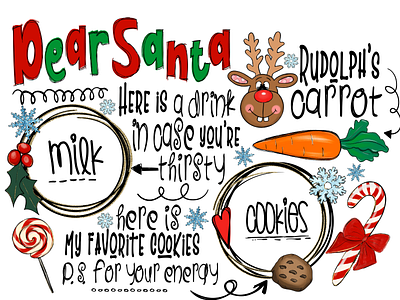 Dear Santa
Rudolph's
carrot
Here is a drink
in case you're
thirsty
milk
here is
my favorite cookies
p.s for your energy
cookies